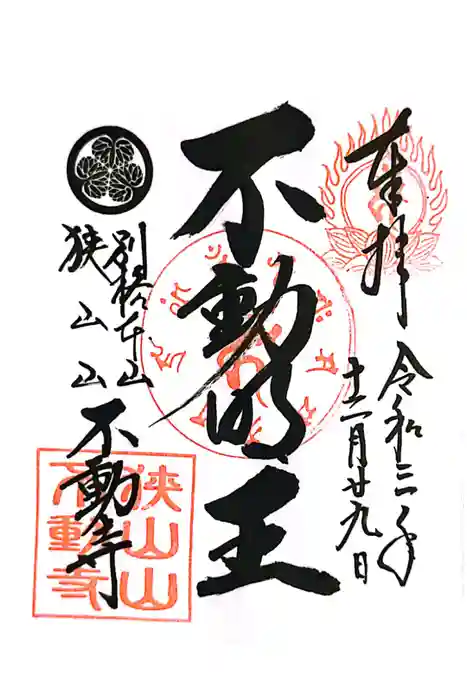 奉拝
令和三年
十二月廿九日
不動明王
別格本山
狭山山
不動寺
狭山山
不動寺